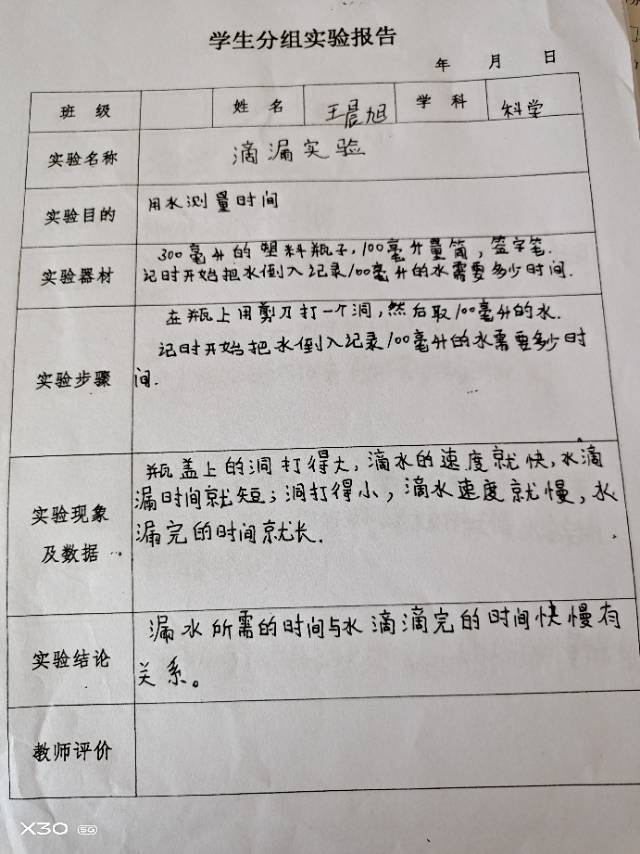 学生分组实验报告
年 月 日
班 级 姓 名 王晨旭 学 科 科学
实验名称 滴漏实验
实验目的 用水测量时间
实验器材 300毫升的塑料瓶子,100毫升量筒,签字笔.
记时开始把水倒入记录100毫升的水需要多少时间.
实验步骤 在瓶上用剪刀打一个洞,然后取100毫升的水.
记时开始把水倒入记录100毫升的水需要多少时
间.
实验现象及数据 瓶盖上的洞打得大,滴水的速度就快,水滴
漏时间就短;洞打得小,滴水速度就慢,水
漏完的时间就长.
实验结论 漏水所需的时间与水滴滴完的时间快慢有
关系。
教师评价
X30 5G